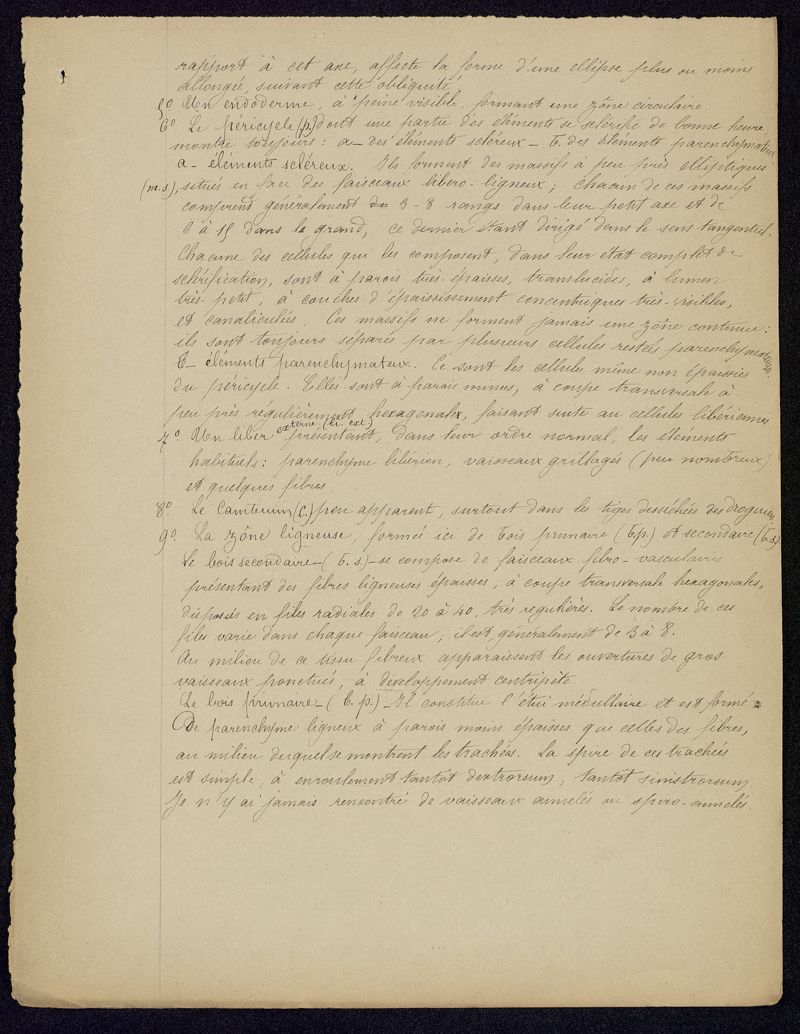 rapport à cet axe, affecte la forme d'une ellipse plus ou moins
allongée, suivant cette obliquité
5º. Un endoderme, à peine visible, formant une zône circulaire
6º. Le péricycle (p.) dont une partie des éléments se sclérifie de bonne heure
montre toujours : a_ des éléments scléreux _ b. des éléments parenchymateux
a_ éléments scléreux. Ils forment des massifs à peu près elliptiques
(m.s), situés en face des faisceaux libero-ligneux ; chacun de ces massifs
comprend généralement de 3-8 rangs dans leur petit axe et de
6 à 15 dans le grand, ce dernier étant dirigé dans le sens tangentiel.
Chacune des cellules qui les composent, dans leur état complet de
sclérification, sont à parois très-épaisses, translucides, à lumen
très-petit, à couches d'épaississement concentriques très-visibles,
et canaliculées. Ces massifs ne forment jamais une zône continue :
ils sont toujours séparés par plusieurs cellules restés parenchymateuses.
b_ éléments parenchymateux. Ce sont les cellules même non épaissies
du péricycle. Elles sont à parois minces, à coupe transversale à
peu près régulièrement hexagonale, faisant suite au cellules libériennes
7º. Un liber externe (li. ext.) présentant, dans leur ordre normal, les éléments
habituels : parenchyme libérien, vaisseaux grillagés (peu nombreux)
et quelques fibres.
8º. Le cambium (c.) peu apparent, surtout dans les tiges desséchées des drogueries
9º. La zône ligneuse, formée ici de bois primaire (b.p.) et secondaire (b.s)
Le bois secondaire _ (b.s.) _ se compose de faisceaux fibro-vasculaires
présentant des fibres ligneuses épaisses, à coupe transversale hexagonales,
disposés en files radiales de 20 à 40, très régulières. Le nombre de ces
files varie dans chaque faisceau ; il est généralement de 3 à 8.
Au milieu de ce tissu fibreux apparaissent les ouvertures de gros
vaisseaux ponctués, à développement centripète
Le bois primaire _ (b.p.) _ Il constitue l'étui médullaire et est formé
De parenchyme ligneux à parois moins épaisses que celles des fibres,
au milieu duquel se montrent les trachées. La spire de ces trachées
est simple, à enroulement tantôt dextrorsum, tantôt sinistrorsum
Je n'y ai jamais rencontré de vaisseaux annelés ou spiro-annelés.